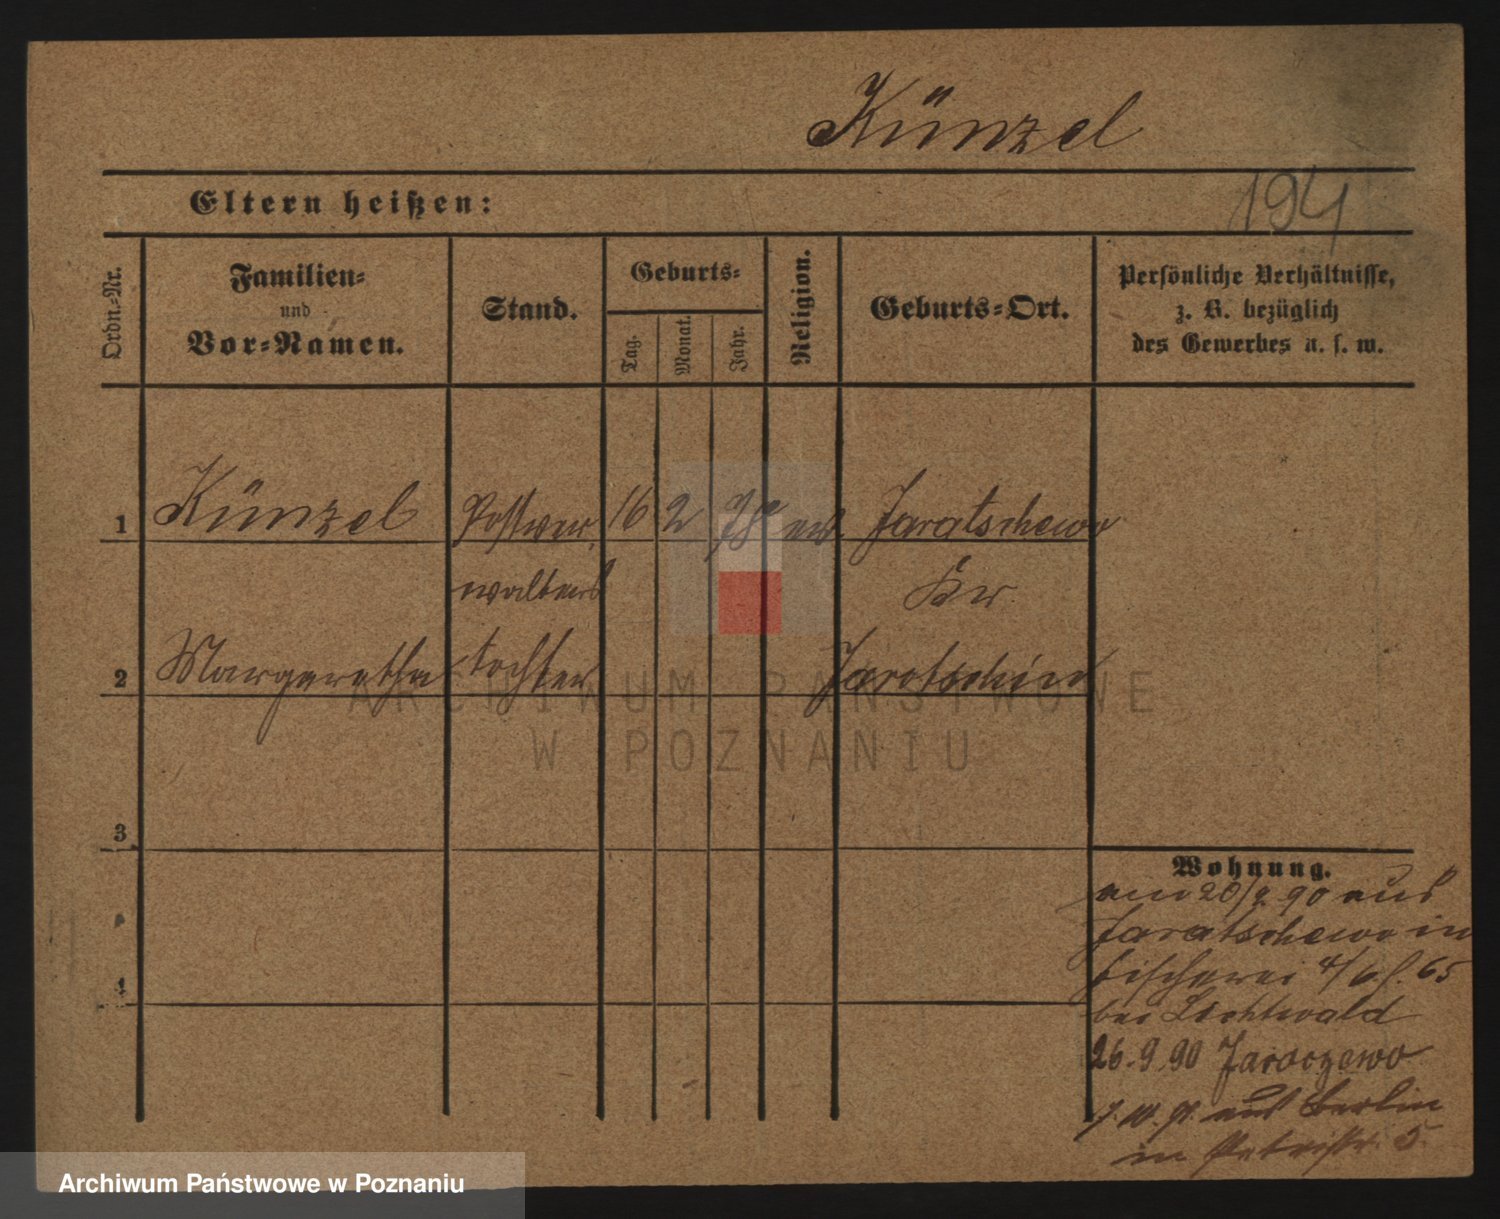 Künzel
194
Eltern heißen:
Ordn.-Nr.
Familien-
und
Vor-Namen.
Stand.
Geburts-
Tag.
Monat.
Jahr.
Religion.
Geburts-Ort.
Persönliche Verhältnisse,
z. B. bezüglich
des Gewerbes u. s. w.
1 Künzel Postver 16 2 Jaratschewo
walters Kr.
2 Margaretha tochter Jarotschin
3
4
Wohnung.
am 20/9. 90 aus
Jaratschewo in
Fischerei 4/6 65
bei Lichtwald
26.9.90 Jaraczewo
aus Berlin
in Petristr. 5
ARCHIWUM PAŃSTWOWE
W POZNANIU
Archiwum Państwowe w Poznaniu